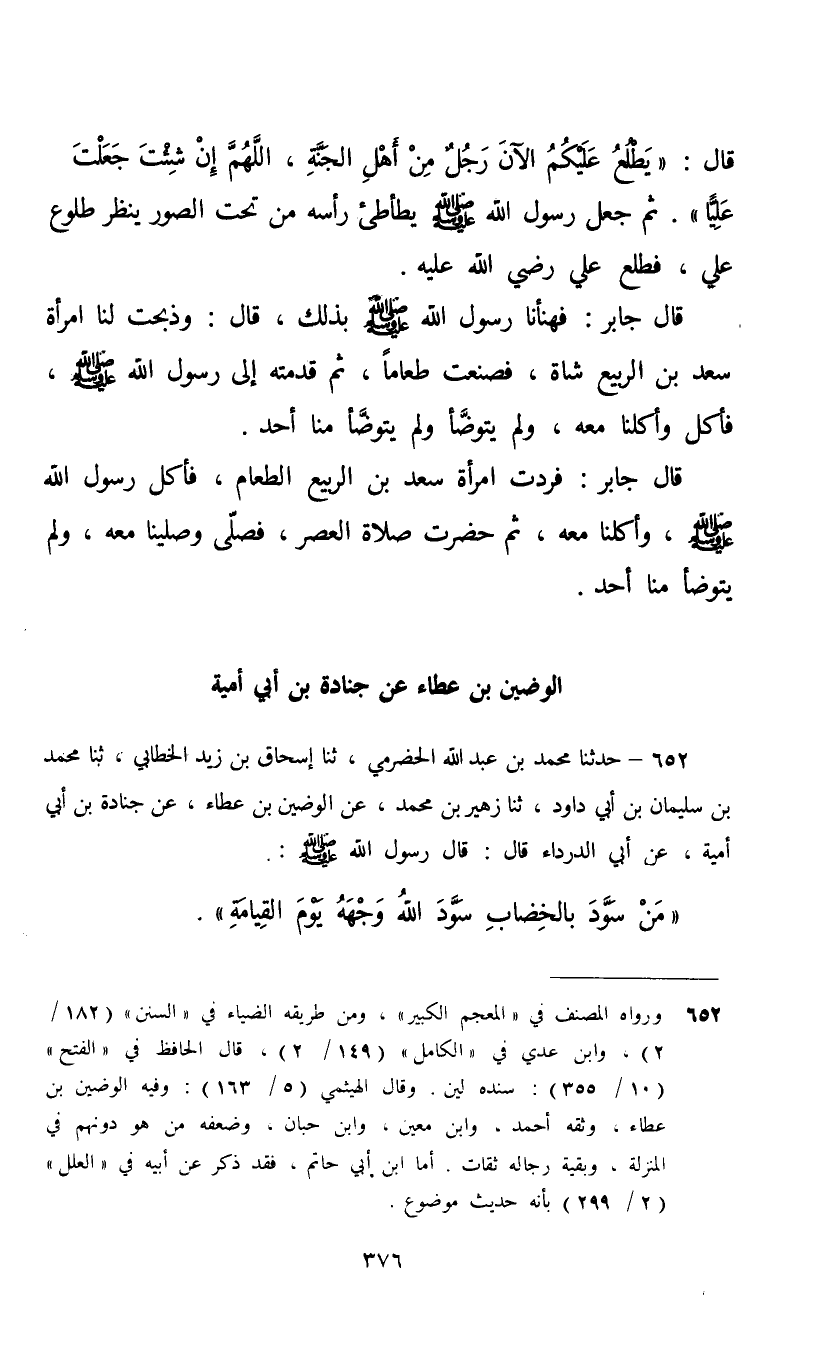 قال : « يَطْلُعُ عَلَيْكُمُ الآنَ رَجُلٌ مِنْ أَهْلِ الجَنَّةِ ، اللَّهُمَّ إِنْ شِئْتَ جَعَلْتَ
عَلِيًّا » . ثم جعل رسول الله ﷺ يطأطئ رأسه من تحت الصور ينظر طلوع
علي ، فطلع علي رضي الله عليه .
قال جابر : فهنأنا رسول الله ﷺ بذلك ، قال : وذبحت لنا امرأة
سعد بن الربيع شاة ، فصنعت طعاماً ، ثم قدمته إلى رسول الله ﷺ ،
فأكل وأكلنا معه ، ولم يتوضَّأ ولم يتوضَّأ منا أحد .
قال جابر : فردت امرأة سعد بن الربيع الطعام ، فأكل رسول الله
ﷺ ، وأكلنا معه ، ثم حضرت صلاة العصر ، فصلّى وصلينا معه ، ولم
يتوضأ منا أحد .
الوضين بن عطاء عن جنادة بن أبي أمية
٦٥٢ – حدثنا محمد بن عبد الله الحضرمي ، ثنا إسحاق بن زيد الخطابي ، ثنا محمد
بن سليمان بن أبي داود ، ثنا زهير بن محمد ، عن الوضين بن عطاء ، عن جنادة بن أبي
أمية ، عن أبي الدرداء قال : قال رسول الله ﷺ :
« مَنْ سَوَّدَ بالخِضابِ سَوَّدَ اللهُ وَجْهَهُ يَوْمَ القِيامَةِ » .
٦٥٢ ورواه المصنف في « المعجم الكبير » ، ومن طريقه الضياء في « السنن » ( ١٨٢ /
٢ ) ، وابن عدي في « الكامل » ( ١٤٩ / ٢ ) ، قال الحافظ في « الفتح »
( ١٠ / ٣٥٥ ) : سنده لين . وقال الهيثمي ( ٥ / ١٦٣ ) : وفيه الوضين بن
عطاء ، وثقه أحمد ، وابن معين ، وابن حبان ، وضعفه من هو دونهم في
المنزلة ، وبقية رجاله ثقات . أما ابن أبي حاتم ، فقد ذكر عن أبيه في « العلل »
( ٢ / ٢٩٩ ) بأنه حديث موضوع .
٣٧٦